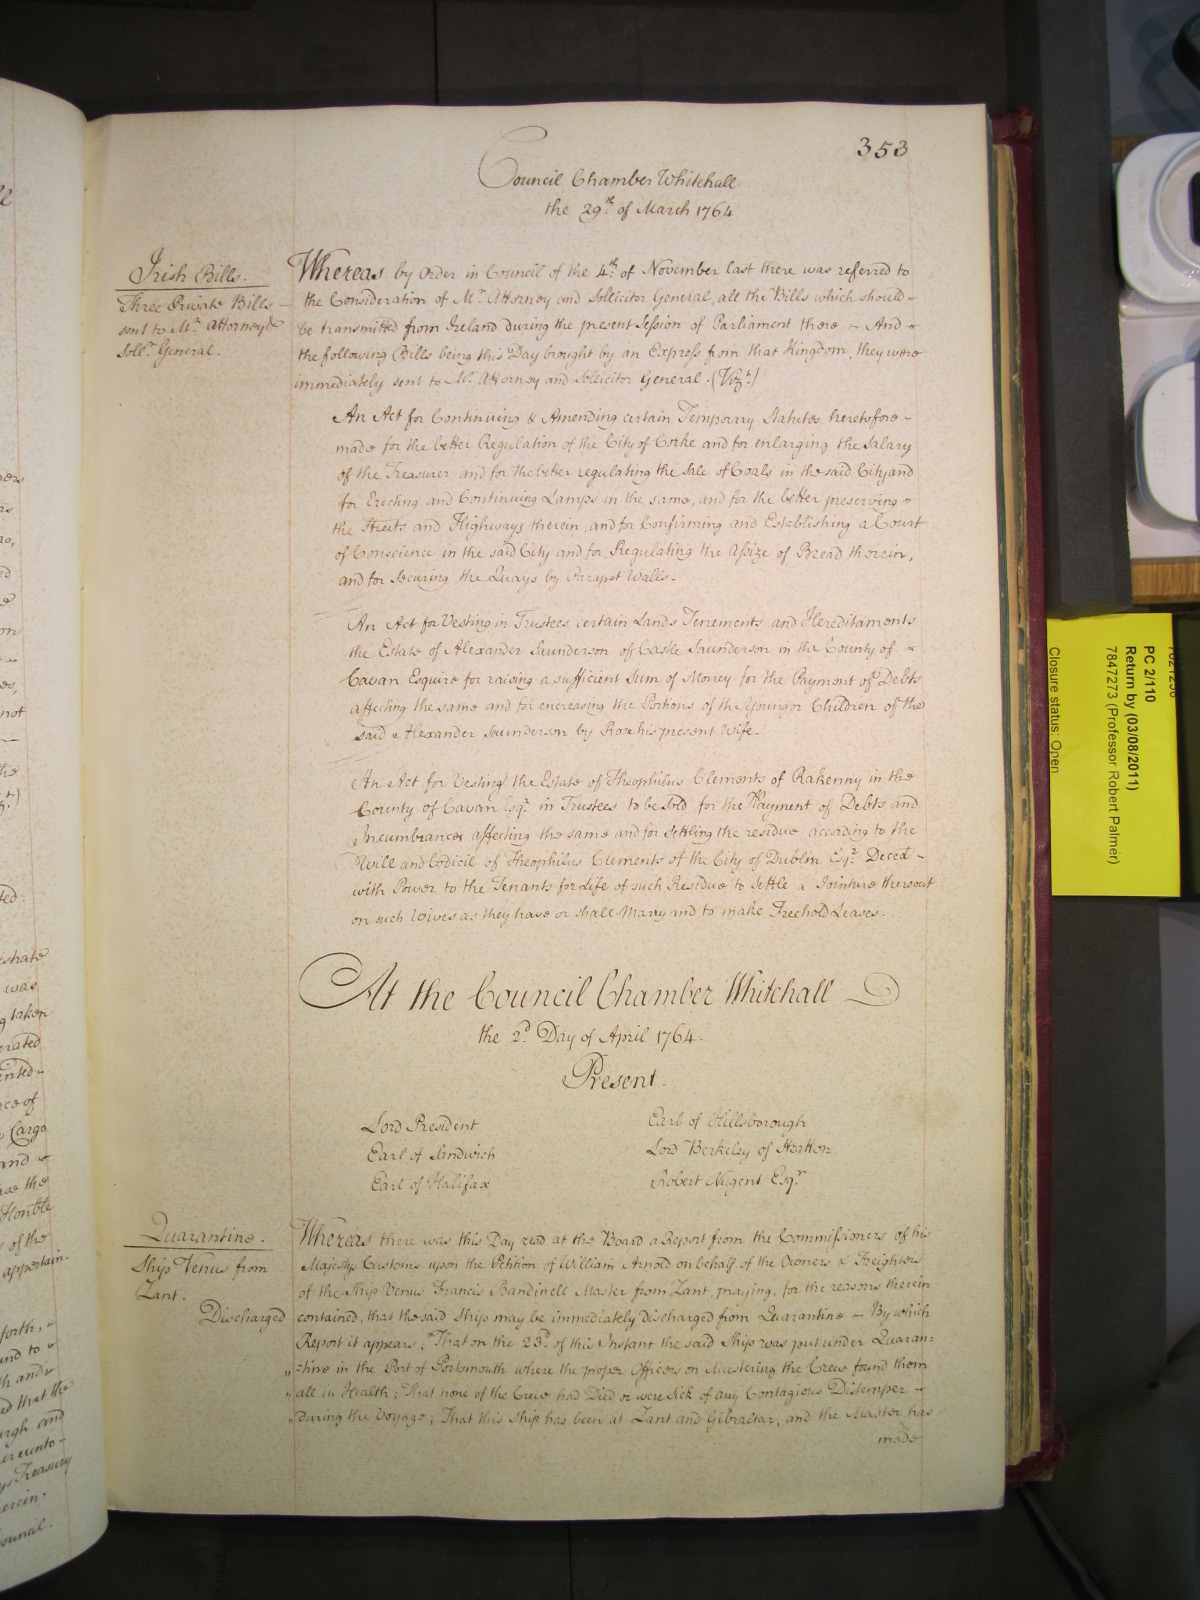 353
Council Chamber Whitehall
the 29th. of March 1764
Irish Bills.
Three Private Bills
sent to Mr. Attorney &
Sollr. General.
Whereas by Order in Council of the 4th. of November last there was referred to
the Consideration of Mr. Attorney and Sollicitor General, all the Bills which should
be transmitted from Ireland during the present Session of Parliament there - And
the following Bills being this Day brought by an Express from that Kingdom, they were
immediately sent to Mr. Attorney and Sollicitor General. (Vizt.)
An Act for Continuing & Amending certain Temporary Statutes heretofore
made for the better Regulation of the City of Corke and for enlarging the Salary
of the Treasurer and for the better regulating the Sale of Coals in the said City and
for Erecting and Continuing Lamps in the same, and for the better preserving
the Streets and Highways therein, and for Confirming and Establishing a Court
of Conscience in the said City and for Regulating the Assize of Bread therein,
and for Securing the Quays by Parapet Walls.
An Act for Vesting in Trustees certain Lands Tenements and Hereditaments
the Estate of Alexander Saunderson of Castle Saunderson in the County of
Cavan Esquire for raising a sufficient Sum of Money for the Payment of Debts
affecting the same and for encreasing the Portions of the Younger Children of the
said Alexander Saunderson by Rose his present Wife.
An Act for Vesting the Estate of Theophilus Clements of Rakenny in the
County of Cavan Esqr. in Trustees to be Sold for the Payment of Debts and
Incumbrances affecting the same and for Settling the residue according to the
Will and Codicil of Theophilus Clements of the City of Dublin Esqr. Deced
with Power to the Tenants for Life of such Residue to Settle a Jointure thereout
on such Wives as they have or shall Marry and to make Freehold Leases.
At the Council Chamber Whitehall
the 2d. Day of April 1764.
Present.
Lord President
Earl of Sandwich
Earl of Halifax
Earl of Hillsborough
Lord Berkeley of Stratton
Robert Nugent Esqr.
Quarantine.
Ship Venus from
Zant.
Discharged
Whereas there was this Day read at the Board a Report from the Commissioners of his
Majestys Customs upon the Petition of William Arnold on behalf of the Owners & Freighters
of the Ship Venus Francis Bandinell Master from Zant, praying, for the reasons therein
contained, that the said Ship may be immediately Discharged from Quarantine - By which
Report it appears, "That on the 23d. of this Instant the said Ship was put under Quaran=
"=tine in the Port of Portsmouth where the proper Officers on Mustering the Crew found them
"all in Health; That none of the Crew had Died or were Sick of any Contagious Distemper
"during the Voyage; That this Ship has been at Zant and Gibraltar, and the Master has
made
PC 2/110
Return by (03/08/2011)
7847273 (Professor Robert Palmer)
Closure status: Open